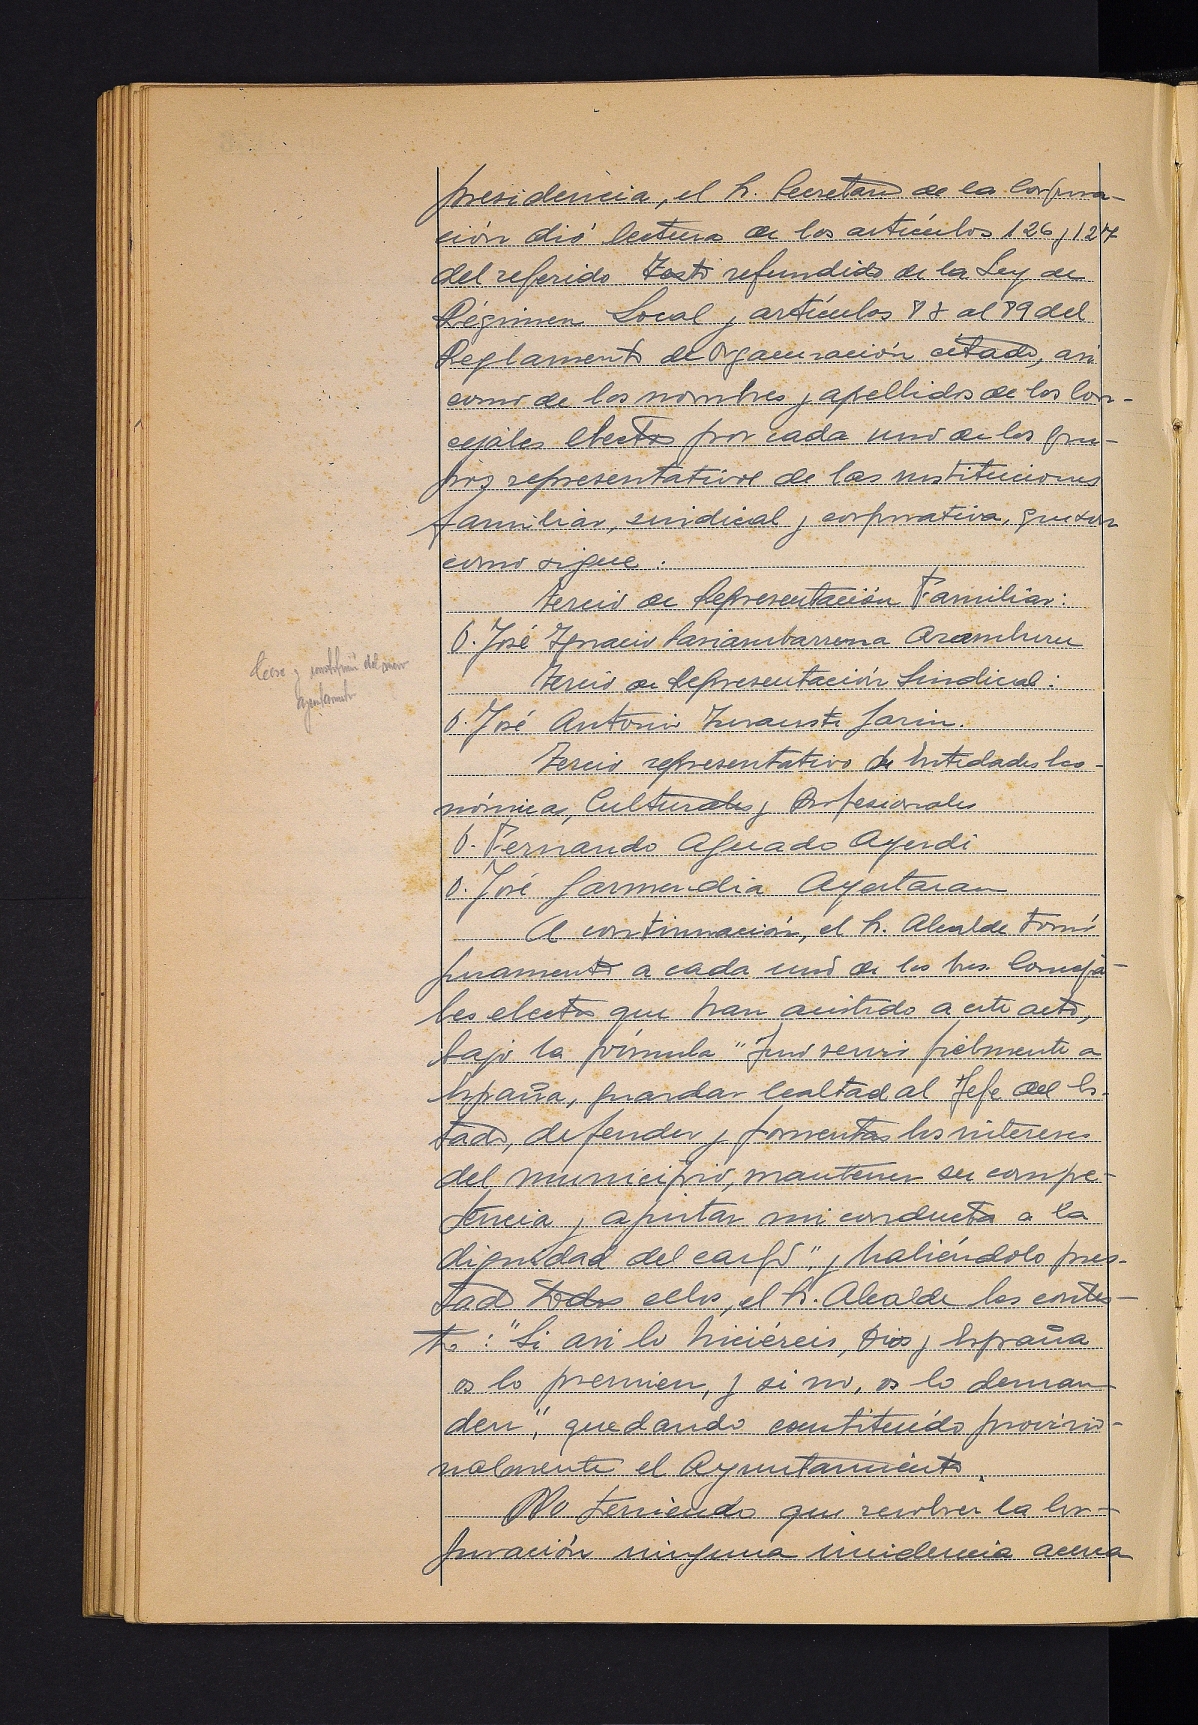 presidencia, el Sr. Secretario de la Corpora-
ción dió lectura de los artículos 126 y 127
del referido Texto refundido de la Ley de
Régimen Local y artículos al 89 del
Reglamento de Organización citado, asi
como de los nombres y apellidos de los Con-
cejales electos por cada uno de los gru-
pos representativos de las instituciones
familiar, sindical y corporativa, que son
como sigue:
Tercio de Representación Familiar:
D. José Ignacio Aramburu
Tercio de Representación Sindical:
D. José Antonio
Tercio representativo de Entidades Eco-
nómicas, Culturales y Profesionales
D. Fernando Aguado Ayerdi
D. José Garmendia
A continuación, el Sr. Alcalde tomó
juramento a cada uno de los Sres. Conceja-
les electos que han asistido a este acto,
bajo la fórmula "Juro servir fielmente a
España, guardar lealtad al Jefe del Es-
tado, defender y fomentar los intereses
del municipio, mantener su compe-
tencia y ajustar mi conducta a la
dignidad del cargo", y habiéndolo pres-
tado todos ellos, el Sr. Alcalde les contes-
tó: "Si asi lo hiciéreis, Dios y España
os lo premien, y si no, os lo deman-
den", quedando constituído provisio-
nalmente el Ayuntamiento.
No teniendo que resolver la Cor-
poración ninguna incidencia acerca
Cese y constitución del nuevo
ayuntamiento